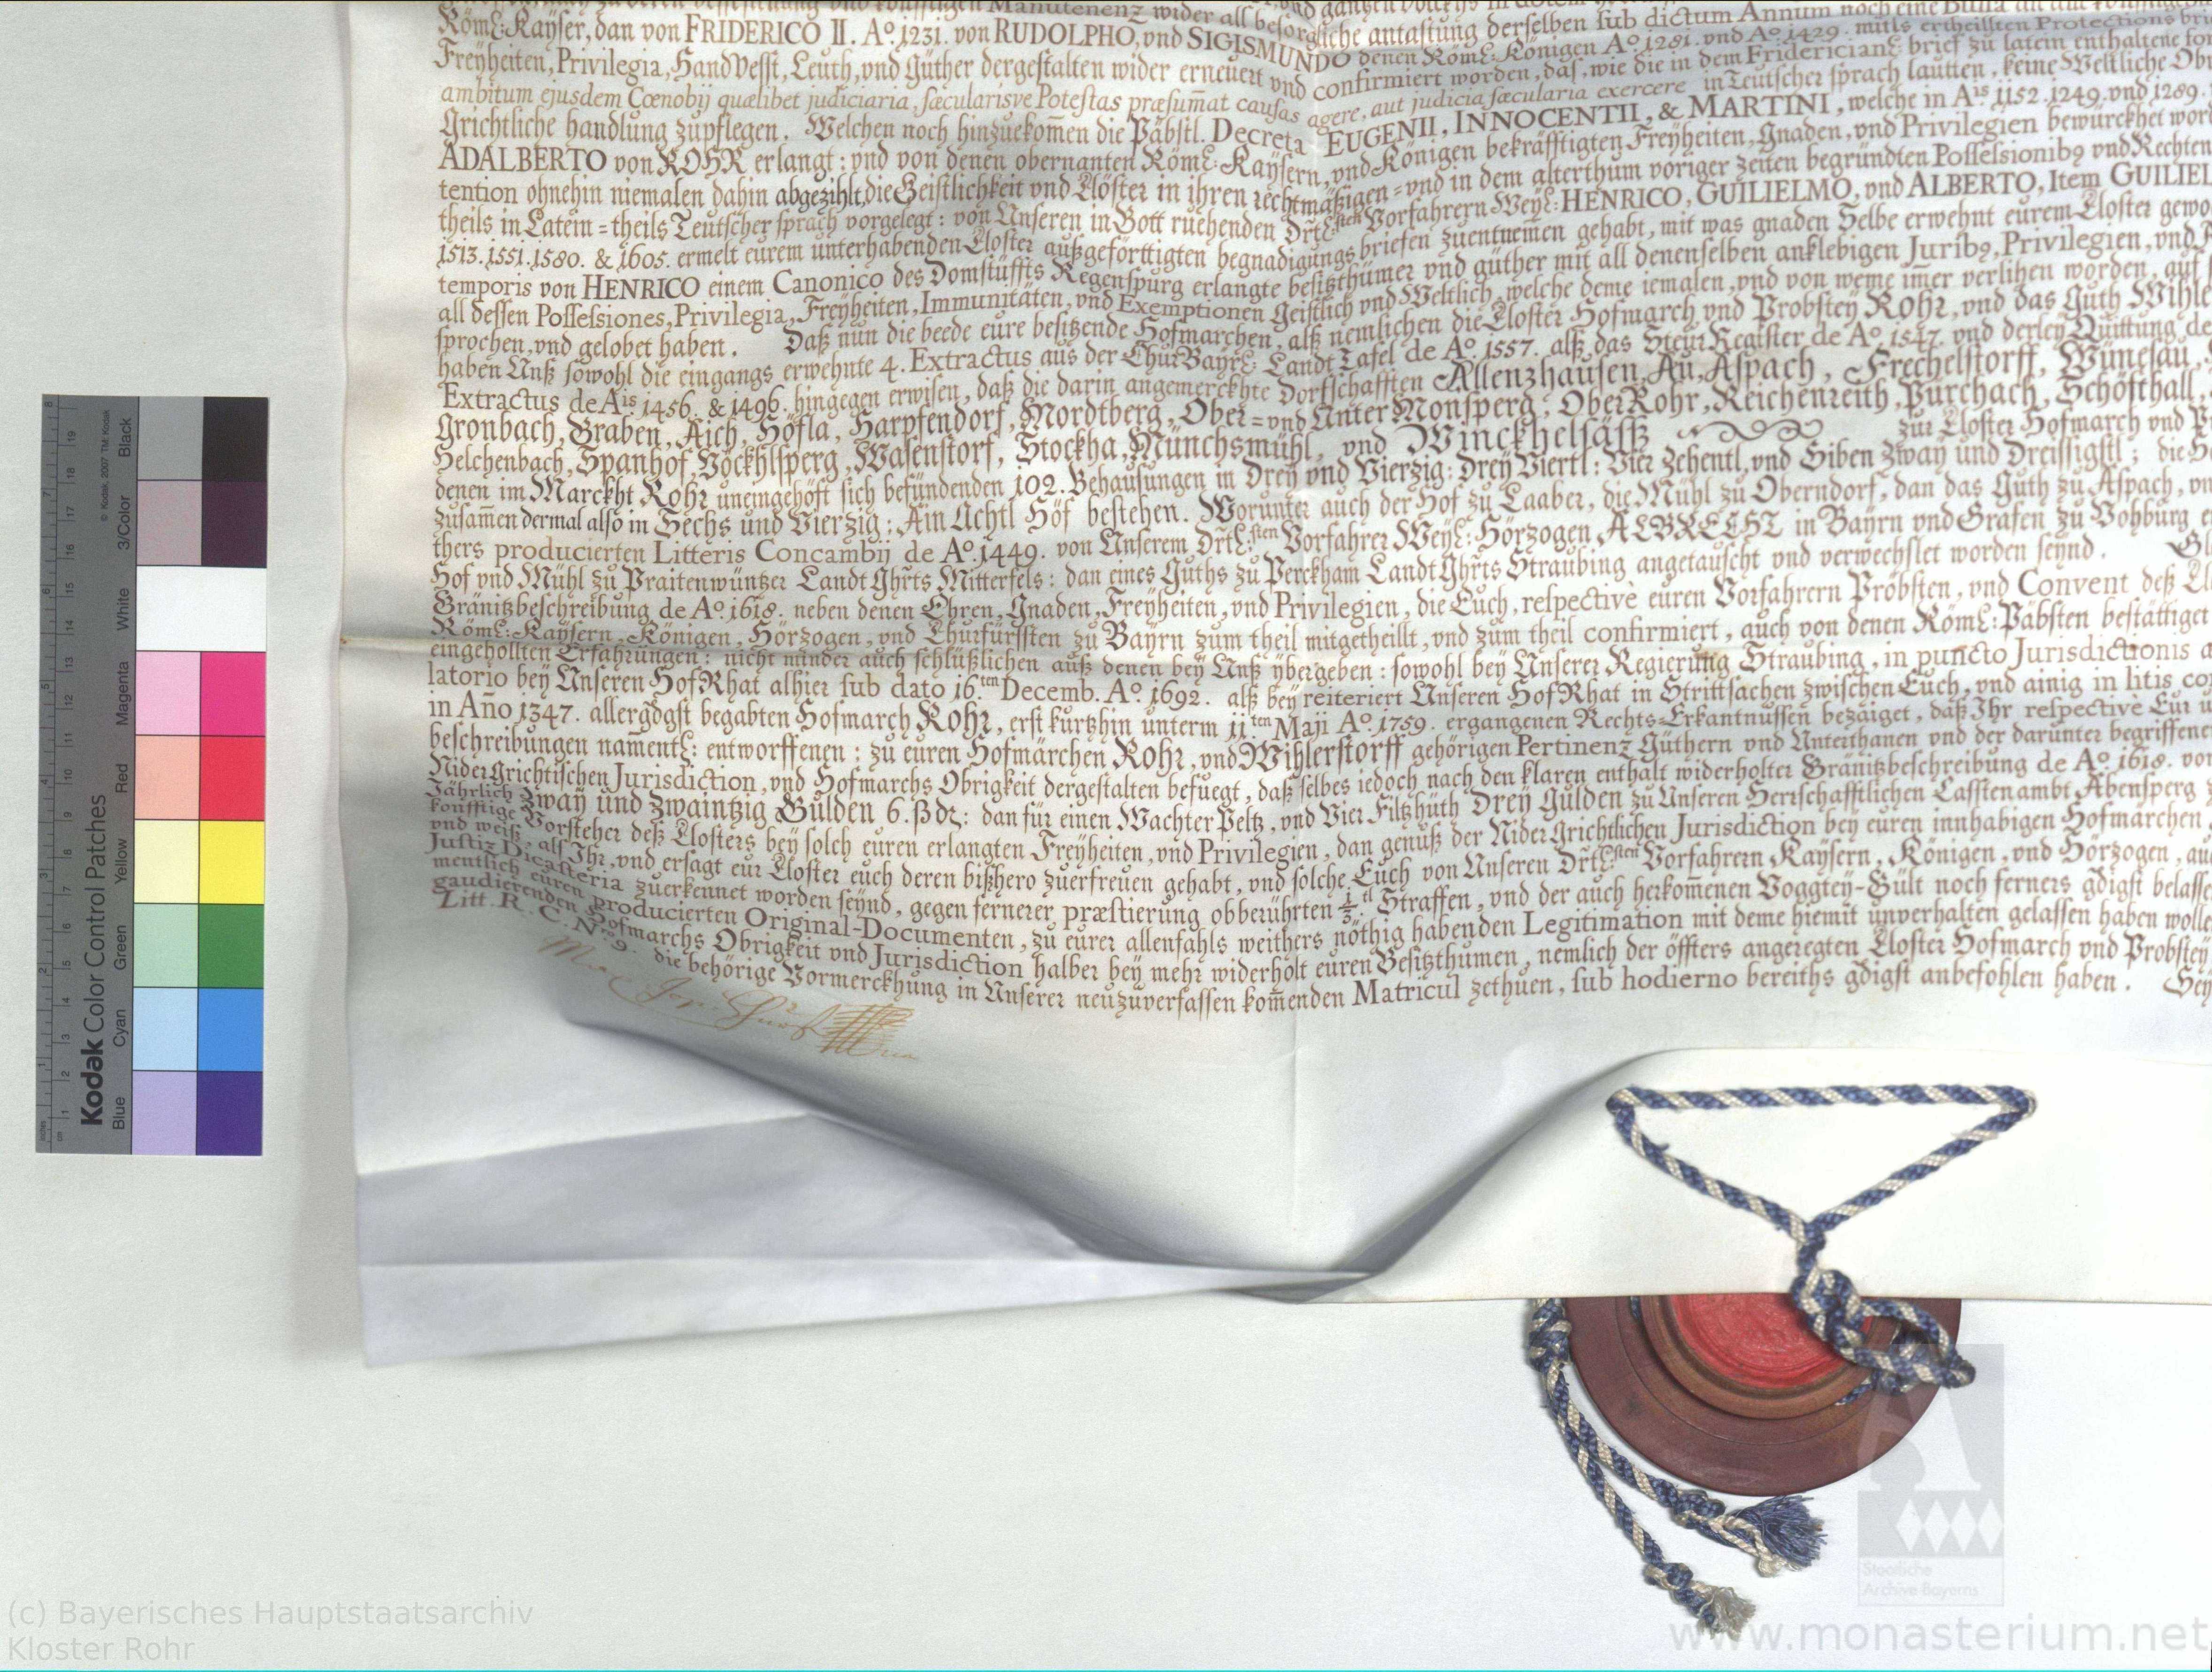 Röml: Kaÿser, dan von FRIDERICO II. Aº. 1231. von RUDOLPHO, vnd SIGISMUNDO denen Röml: Königen Aº. 1281. vnd Aº. 1429. mitls ertheillten Protections
Freÿheiten, Privilegia, Handvesst, Leuth, vnd Güther dergestalten wider erneuert vnd confirmiert worden, das, wie die in dem Fridericianl: brief zu latein enthaltene
ambitum ejusdem Cœnobij quælibet judiciaria, sæcularisve Potestas præsum̄at causas agere, aut judicia sæcularia exercere in Teutscher sprach lautten, keine Weltliche
Grichtliche handlung zupflegen. Welchen noch hinzuekom̄en die Päbstl. Decreta EUGENII, INNOCENTII, & MARTINI, welche in Aⁱˢ 1152. 1249. vnd 1289.
ADALBERTO von ROHR erlangt: vnd von denen obernanten Röml: Kaÿsern, vnd Königen bekräfftigten Freÿheiten, Gnaden, vnd Privilegien bewürckhet
tention ohnehin niemalen dahin abgezihlt, die Geistlichkeit vnd Clöster in ihren rechtmäßigen= vnd in dem alterthum voriger zeiten begründten Possessionibꝰ vnd Rechten
theils in Latein= theils Teutscher sprach vorgelegt: von Unseren in Gott ruehenden Drtl:sten Vorfahrern Weÿl: HENRICO, GUILIELMO, vnd ALBERTO, Item
1513. 1551. 1580. & 1605. ermelt eurem unterhabenden Closter außgeförttigten begnadigungs briefen zuentnem̄en gehabt, mit was gnaden Selbe erwehnt eurem Closter
temporis von HENRICO einem Canonico des Domstüffts Regenspurg erlangte besitzthümer vnd güther mit all denenselben anklebigen Juribꝰ, Privilegien, vnd
all dessen Possessiones, Privilegia, Freÿheiten, Immunitäten, vnd Exemptionen Geistlich vnd Weltlich, welche deme iemalen, vnd von weme im̄er verlihen worden, auf
sprochen, vnd gelobet haben. Daß nun die beede eure besitzende Hofmarchen, alß nemlichen die Closter Hofmarch vnd Probsteÿ Rohr, vnd das Guth
haben Unß sowohl die eingangs erwehnte 4. Extractus aus der ChurBaÿrl: Landt Tafel de Aº. 1557. alß das Steur Register de Aº. 1547. vnd derleÿ Quittung
Extractus de Aⁱˢ 1456. & 1496. hingegen erwisen, daß die darin angemerckhte Dorfschafften Allenzhausen, Au, Aspach, Frechelstorff, Wünesau,
Gronbach, Graben, Aich, Höfla, Harpfendorf, Mordtberg, Ober= vnd Unter Monsperg, Ober Rohr, Reichenreith, Purchach, Schöfthall,
Helchenbach, Spanhof, Vöckhlsperg, Wasenstorf, Stockha, Münchsmühl, vnd Winckhelsäss zur Closter Hofmarch vnd
denen im Marckht Rohr uneingehöft sich befündenden 102. Behausungen in Dreÿ vnd Vierzig: Dreÿ Viertl: Vier Zehentl, vnd Siben Zwaÿ und Dreissigstl; die
zusam̄en dermal also in Sechs und Vierzig: Ain Achtl Höf bestehen. Worunter auch der Hof zu Laaber, die Mühl zu Oberndorf, dan das Guth zu Aspach,
thers producierten Litteris Concambij de Aº. 1449. von Unserem Drtl:sten Vorfahrer Weÿl: Hörzogen ALBRECHT in Baÿrn vnd Grafen zu Vohburg
Hof vnd Mühl zu Praitenwüntzer Landt Ghrts Mitterfels: dan eines Guths zu Perckham Landt Ghrts Straubing angetauscht vnd verwechslet worden seÿnd.
Gränitzbeschreibung de Aº. 1618. neben denen Ehren, Gnaden, Freÿheiten, vnd Privilegien, die Euch, respectivè euren Vorfahrern Pröbsten, vnd Convent deß
Röml: Kaÿsern, Königen, Hörzogen, vnd Churfürssten zu Baÿrn zum theil mitgetheillt, vnd zum theil confirmiert, auch von denen Röml: Päbsten bestättiget
eingehollten Erfahrungen: nicht minder auch schlüßlichen auß denen beÿ Unß ybergeben: sowohl beÿ Unserer Regierung Straubing, in puncto Jurisdictionis
latorio beÿ Unseren HofRhat alhier sub dato 16.ten Decemb. Aº. 1692. alß beÿ reiteriert Unseren HofRhat in Strittsachen zwischen Euch, vnd ainig in litis
in Año 1347. allergdgst begabten Hofmarch Rohr, erst kurtzhin unterm 11ten Maji Aº. 1759. ergangenen Rechts=Erkantnussen bezäiget, daß Ihr respectivè Eur
beschreibungen namentl: entworffenen: zu euren Hofmärchen Rohr, vnd Wihlerstorff gehörigen Pertinenz Güthern vnd Unterthanen vnd der darunter begriffenen
NiderGrichtischen Jurisdiction, vnd Hofmarchs Obrigkeit dergestalten befuegt, daß selbes iedoch nach den klaren enthalt widerholter Gränitzbeschreibung de Aº. 1618.
Jährlich Zwaÿ und Zwaintzig Gulden 6. ß dl: dan für einen Wachter Peltz, vnd Vier Filtzhüth Dreÿ Gulden zu Unseren Herrschafftlichen Casstenambt Abensperg
könfftige Vorsteher deß Closters beÿ solch euren erlangten Freÿheiten, vnd Privilegien, dan genuß der NiderGrichtlichen Jurisdiction beÿ euren innhabigen Hofmarchen
vnd weiß, alß Ihr, vnd ersagt eur Closter euch deren bißhero zuerfreuen gehabt, vnd solche Euch von Unseren Drtl:sten Vorfahrern Kaÿsern, Königen, vnd Hörzogen,
Justiz Dicasteria zuerkennet worden seÿnd, gegen fernerer præstierung obberührten 1/3tl Straffen, vnd der auch herkom̄enen Voggteÿ-Gült noch ferners gdigst
mentlich euren producierten Original-Documenten, zu eurer allenfahls weithers nöthig habenden Legitimation mit deme hiemit unverhalten gelassen haben
gaudierenden Hofmarchs Obrigkeit vnd Jurisdiction halber beÿ mehr widerholt euren Besitzthumen, nemlich der öffters angeregten Closter Hofmarch vnd Probsteÿ
Litt. R. C. Nro. 9. die behörige Vormerckhung in Unserer neuzuverfassen kom̄enden Matricul zethuen, sub hodierno bereiths gdigst anbefohlen haben.
Kodak Color Control Patches
© Kodak, 2007 TM: Kodak
Blue Cyan Green Yellow Red Magenta White 3/Color Black
inches
cm
1 2 3 4 5 6 7 8
1 2 3 4 5 6 7 8 9 10 11 12 13 14 15 16 17 18 19
Staatliche
Archive Bayerns
(c) Bayerisches Hauptstaatsarchiv
Kloster Rohr
www.monasterium.net